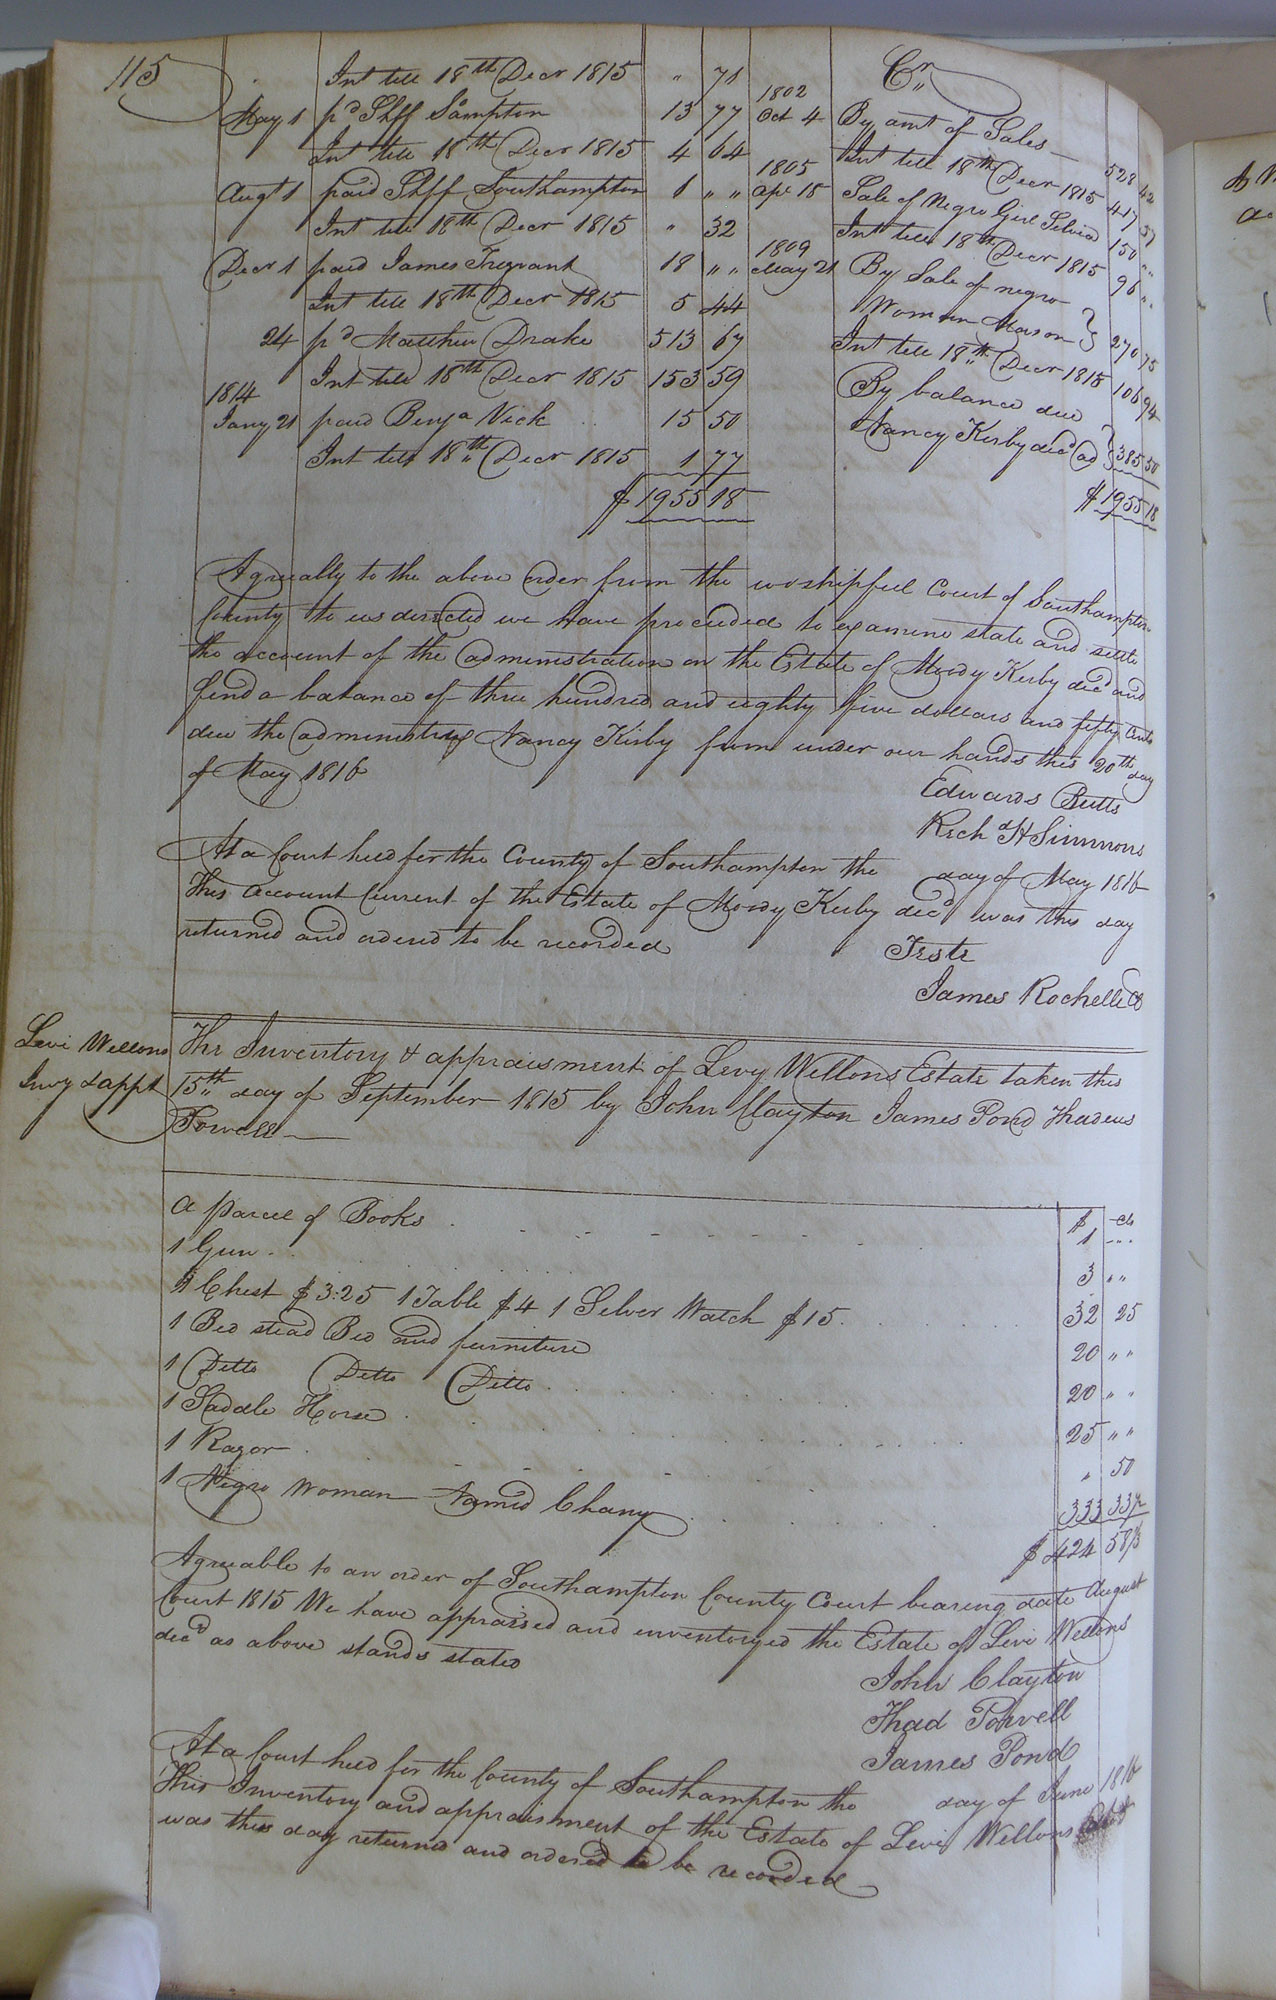 115
Int till 18th Decr 1815 " 71
May 1 pd Shff Sampton 13 77
Int till 18th Decr 1815 4 64
Augt 1 paid Shff Southampton 1 " "
Int till 18th Decr 1815 " 32
Decr 1 paid James Trezvant 18 " "
Int till 18th Decr 1815 5 44
24 pd Matthew Drake 513 67
Int till 18th Decr 1815 153 59
1814
Jany 21 paid Benja Vick 15 50
Int till 18th Decr 1815 1 77
$ 1955 18
Cr
1802
Oct 4 By amt of Sales 528 42
Int till 18th Decr 1815 417 57
1805
Apl 15 Sale of Negro Girl Selvia 150 " "
Int till 18th Decr 1815 96 " "
1809
May 21 By Sale of negro
Woman Mason } 270 75
Int till 18th Decr 1815 106 94
By balance due
Nancy Kirby decd ad } 385 50
$ 1955 18
Agreeally to the above order from the worshipfull Court of Southampton
County to us directed we have proceeded to examine state and settle
the account of the administration on the Estate of Moody Kirby decd and
find a balance of three hundred and eighty five dollars and fifty Cents
due the administrix Nancy Kirby from under our hands this 20th day
of May 1816
Edwards Butts
Richd H Simmons
At a Court held for the County of Southampton the day of May 1816
This Account Current of the Estate of Moody Kirby decd was this day
returned and ordered to be recorded
Teste
James Rochelle C
Levi Wellons
Invy & appt
The Inventory & appraisment of Levy Wellons Estate taken this
15th day of September 1815 by John Clayton James Pond Thadeus
Powell
$ cts
A parcel of Books 1 " "
1 Gun 3 " "
1 Chest $3.25 1 Table $4 1 Selver Watch $15 32 25
1 Bed stead Bed and furniture 20 " "
1 Ditto Ditto Ditto 20 " "
1 Saddle Horse 25 " "
1 Razor " 50
1 Negro Woman Named Chany 333 33⅓
$ 424 58⅓
Agreeable to an order of Southampton County Court bearing date August
Court 1815 We have appraised and inventoryed the Estate of Levi Wellons
decd as above stands stated
John Clayton
Thad Powell
James Pond
At a Court held for the County of Southampton the day of June 1816
This Inventory and appraisment of the Estate of Levi Wellons
was this day returned and ordered to be recorded